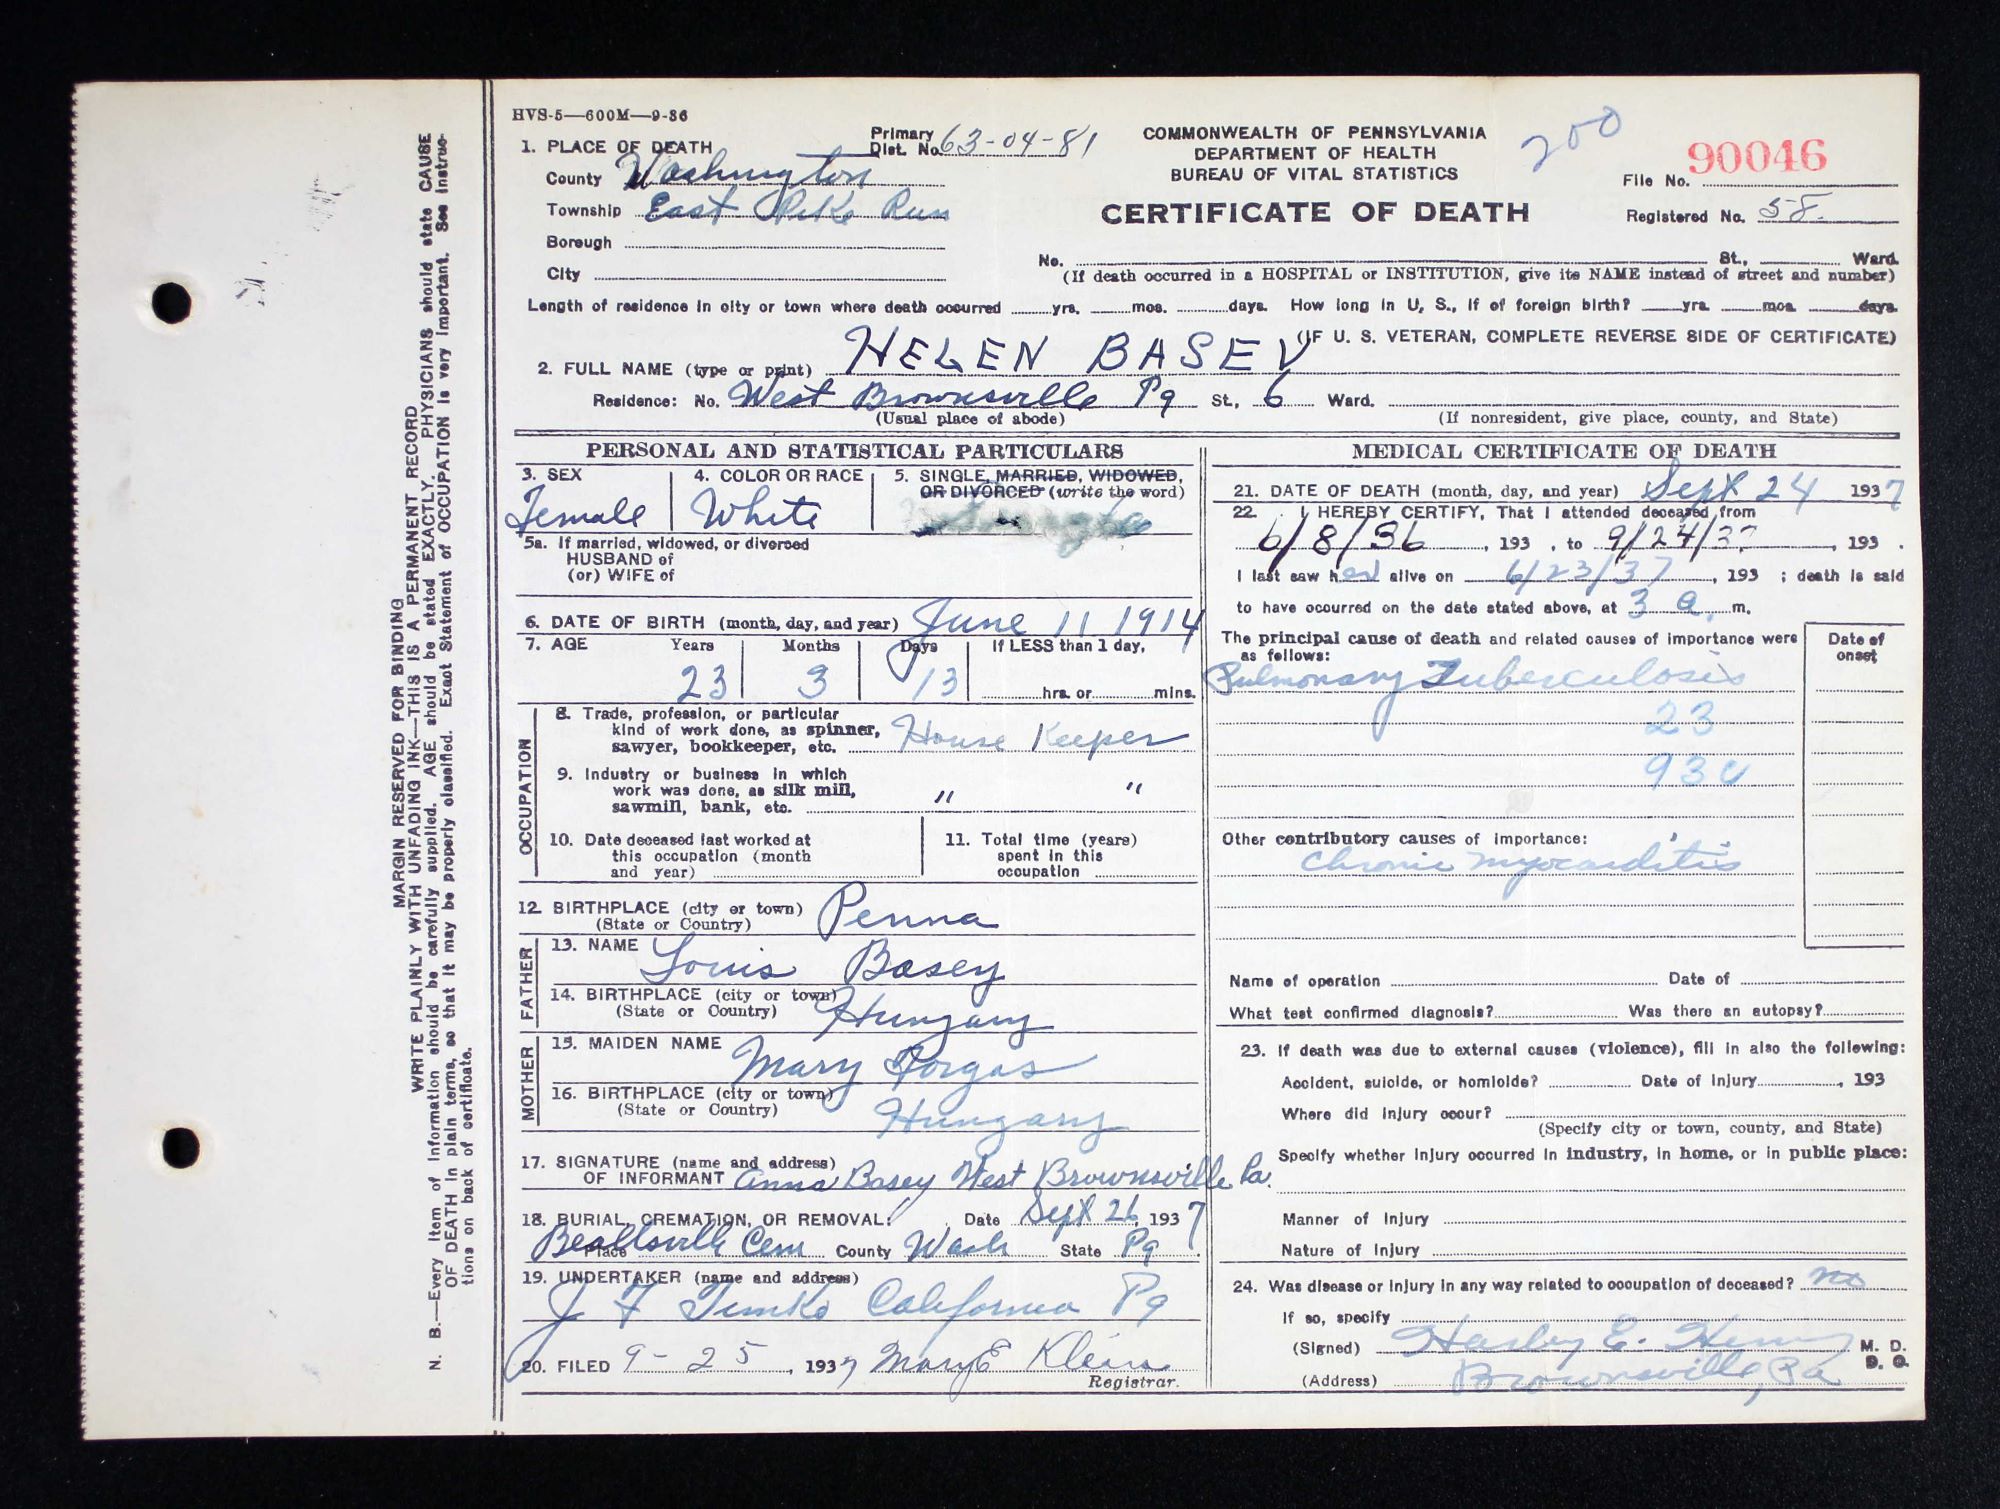 HVS-5—600M—9-36
1. PLACE OF DEATH
Primary Dist. No. 63-04-81
County Washington
Township East Pike Run
Borough
City
COMMONWEALTH OF PENNSYLVANIA
DEPARTMENT OF HEALTH
BUREAU OF VITAL STATISTICS
CERTIFICATE OF DEATH
200
90046
File No.
Registered No. 58.
No. St., Ward.
(If death occurred in a HOSPITAL or INSTITUTION, give its NAME instead of street and number)
Length of residence in city or town where death occurred yrs. mos. days. How long in U. S., if of foreign birth? yrs. mos. days.
(IF U. S. VETERAN, COMPLETE REVERSE SIDE OF CERTIFICATE)
2. FULL NAME (type or print) HELEN BASEY
Residence: No. West Brownsville Pa St., 6 Ward.
(Usual place of abode) (If nonresident, give place, county, and State)
PERSONAL AND STATISTICAL PARTICULARS
3. SEX
Female
4. COLOR OR RACE
White
5. SINGLE, MARRIED, WIDOWED,
OR DIVORCED (write the word)
5a. If married, widowed, or divorced
HUSBAND of
(or) WIFE of
6. DATE OF BIRTH (month, day, and year) June 11 1914
7. AGE Years Months Days If LESS than 1 day,
23 3 13 hrs. or mins.
OCCUPATION
8. Trade, profession, or particular
kind of work done, as spinner,
sawyer, bookkeeper, etc. House Keeper
9. Industry or business in which
work was done, as silk mill,
sawmill, bank, etc. " "
10. Date deceased last worked at
this occupation (month
and year)
11. Total time (years)
spent in this
occupation
12. BIRTHPLACE (city or town) Penna
(State or Country)
FATHER
13. NAME Louis Basey
14. BIRTHPLACE (city or town) Hungary
(State or Country)
MOTHER
15. MAIDEN NAME Mary Forgas
16. BIRTHPLACE (city or town)
(State or Country) Hungary
17. SIGNATURE (name and address)
OF INFORMANT Anna Basey West Brownsville Pa.
18. BURIAL, CREMATION, OR REMOVAL: Date Sept 26, 1937
Place Beallsville Cem County Wash State Pa.
19. UNDERTAKER (name and address)
J F Timko California Pa
20. FILED 9-25, 1937 Mary E Klein
Registrar.
MEDICAL CERTIFICATE OF DEATH
21. DATE OF DEATH (month, day, and year) Sept 24 1937
22. I HEREBY CERTIFY, That I attended deceased from
6/8/36, 193 , to 9/24/37, 193 .
I last saw her alive on 6/23/37, 193 ; death is said
to have occurred on the date stated above, at 3 a. m.
The principal cause of death and related causes of importance were
as follows:
Date of
onset
Pulmonary Tuberculosis
23
93c
Other contributory causes of importance:
Chronic myocarditis
Name of operation Date of
What test confirmed diagnosis? Was there an autopsy?
23. If death was due to external causes (violence), fill in also the following:
Accident, suicide, or homicide? Date of injury , 193
Where did injury occur?
(Specify city or town, county, and State)
Specify whether injury occurred in industry, in home, or in public place:
Manner of injury
Nature of injury
24. Was disease or injury in any way related to occupation of deceased? no
If so, specify
(Signed) Harley E. Henry M. D.
D. O.
(Address) Brownsville, Pa
MARGIN RESERVED FOR BINDING
WRITE PLAINLY WITH UNFADING INK—THIS IS A PERMANENT RECORD
N. B.—Every item of information should be carefully supplied. AGE should be stated EXACTLY. PHYSICIANS should state CAUSE
OF DEATH in plain terms, so that it may be properly classified. Exact Statement of OCCUPATION is very important. See instruc-
tions on back of certificate.